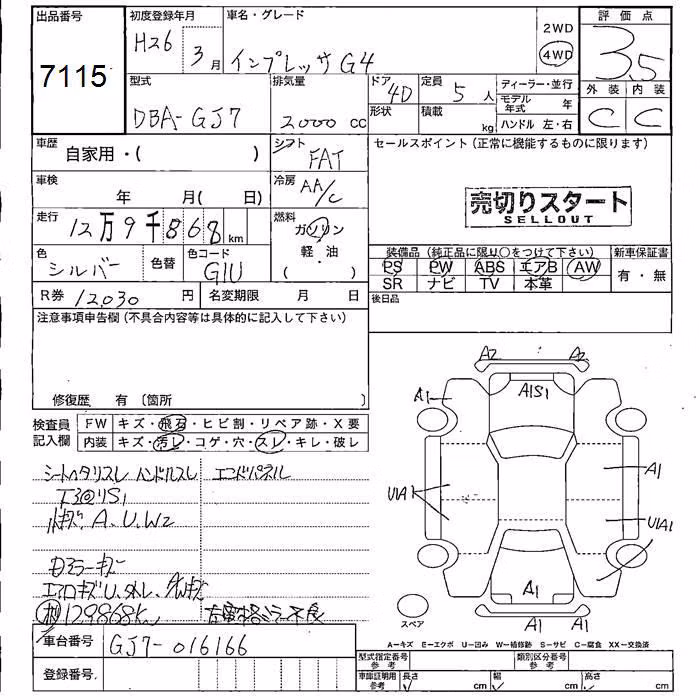 出品番号
7115
初度登録年月
H26 3月
車名・グレード
インプレッサG4
2WD
4WD
評価点
3.5
型式
DBA-GJ7
排気量
2000 cc
ドア
4D
形状
定員
5 人
積載
kg
ディーラー・並行
モデル年式 年
ハンドル 左・右
外装 内装
C C
車歴
自家用・( )
シフト
FAT
セールスポイント(正常に機能するものに限ります)
車検
年 月( 日)
冷房
AA/C
売切りスタート
SELLOUT
走行
12万9千868 km
燃料
ガソリン
軽油
・
( )
色
シルバー
色替
色コード
G1U
装備品(純正品に限り○をつけて下さい)
新車保証書
PS PW ABS エアB AW
SR ナビ TV 本革
有・無
R券 12030 円
名変期限 月 日
後日品
注意事項申告欄(不具合内容等は具体的に記入して下さい)
修復歴 有〔箇所 〕
検査員記入欄
FW キズ・飛石・ヒビ割・リペア跡・X要
内装 キズ・汚レ・コゲ・穴・スレ・キレ・破レ
シートヘタリスレ ハンドルスレ エンドパネル
A.U.W2
129868km
車台番号
GJ7-016166
登録番号
A2 A2
A1S1
A1
A1
UIA1
UIA1
A1
A1 A1
スペア
A-キズ E-エクボ U-凹み W-補修跡 S-サビ C-腐食 XX-交換済
型式指定番号 参考
類別区分番号 参考
車庫証明用 参考
長さ cm
幅 cm
高さ cm